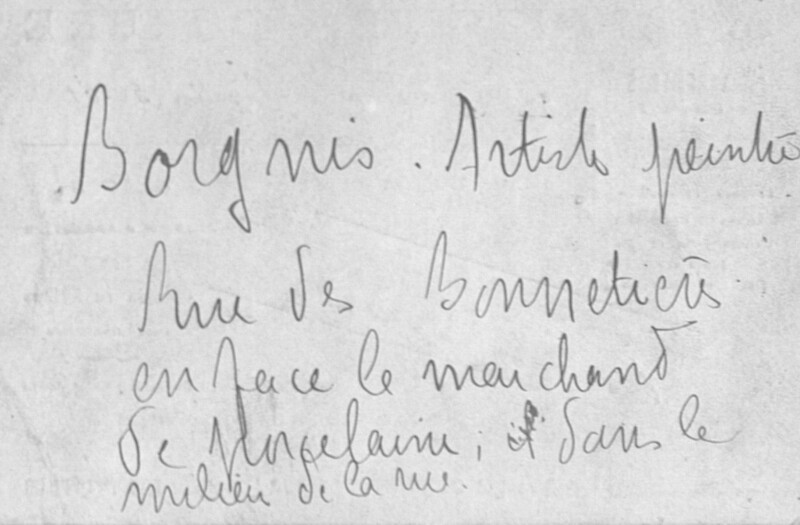 Borgnis. Artiste peintre
Rue des Bonnetiers
en face le marchand
de porcelaine; dans le
milieu de la rue.